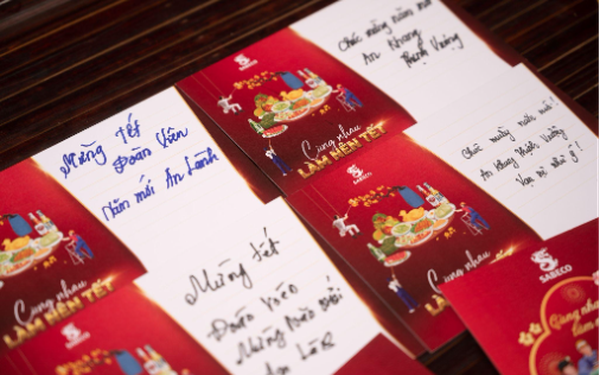 Mừng tết
Đoàn Viên
Năm mới An Lành
SABECO
Cùng nhau
LÀM NÊN TẾT
Chúc mừng năm mới
An Khang
Thịnh Vượng
SABECO
Cùng nhau
LÀM NÊN TẾT
Chúc mừng năm mới!
An khang thịnh vượng
Vạn sự như ý!
SABECO
Cùng nhau
LÀM NÊN TẾT
Mừng tết
SABECO
Cùng nhau
LÀM NÊN TẾT
SABECO
Cùng nhau